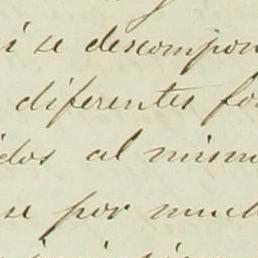 i se descompon
diferentes fo
idos al mism
se por much